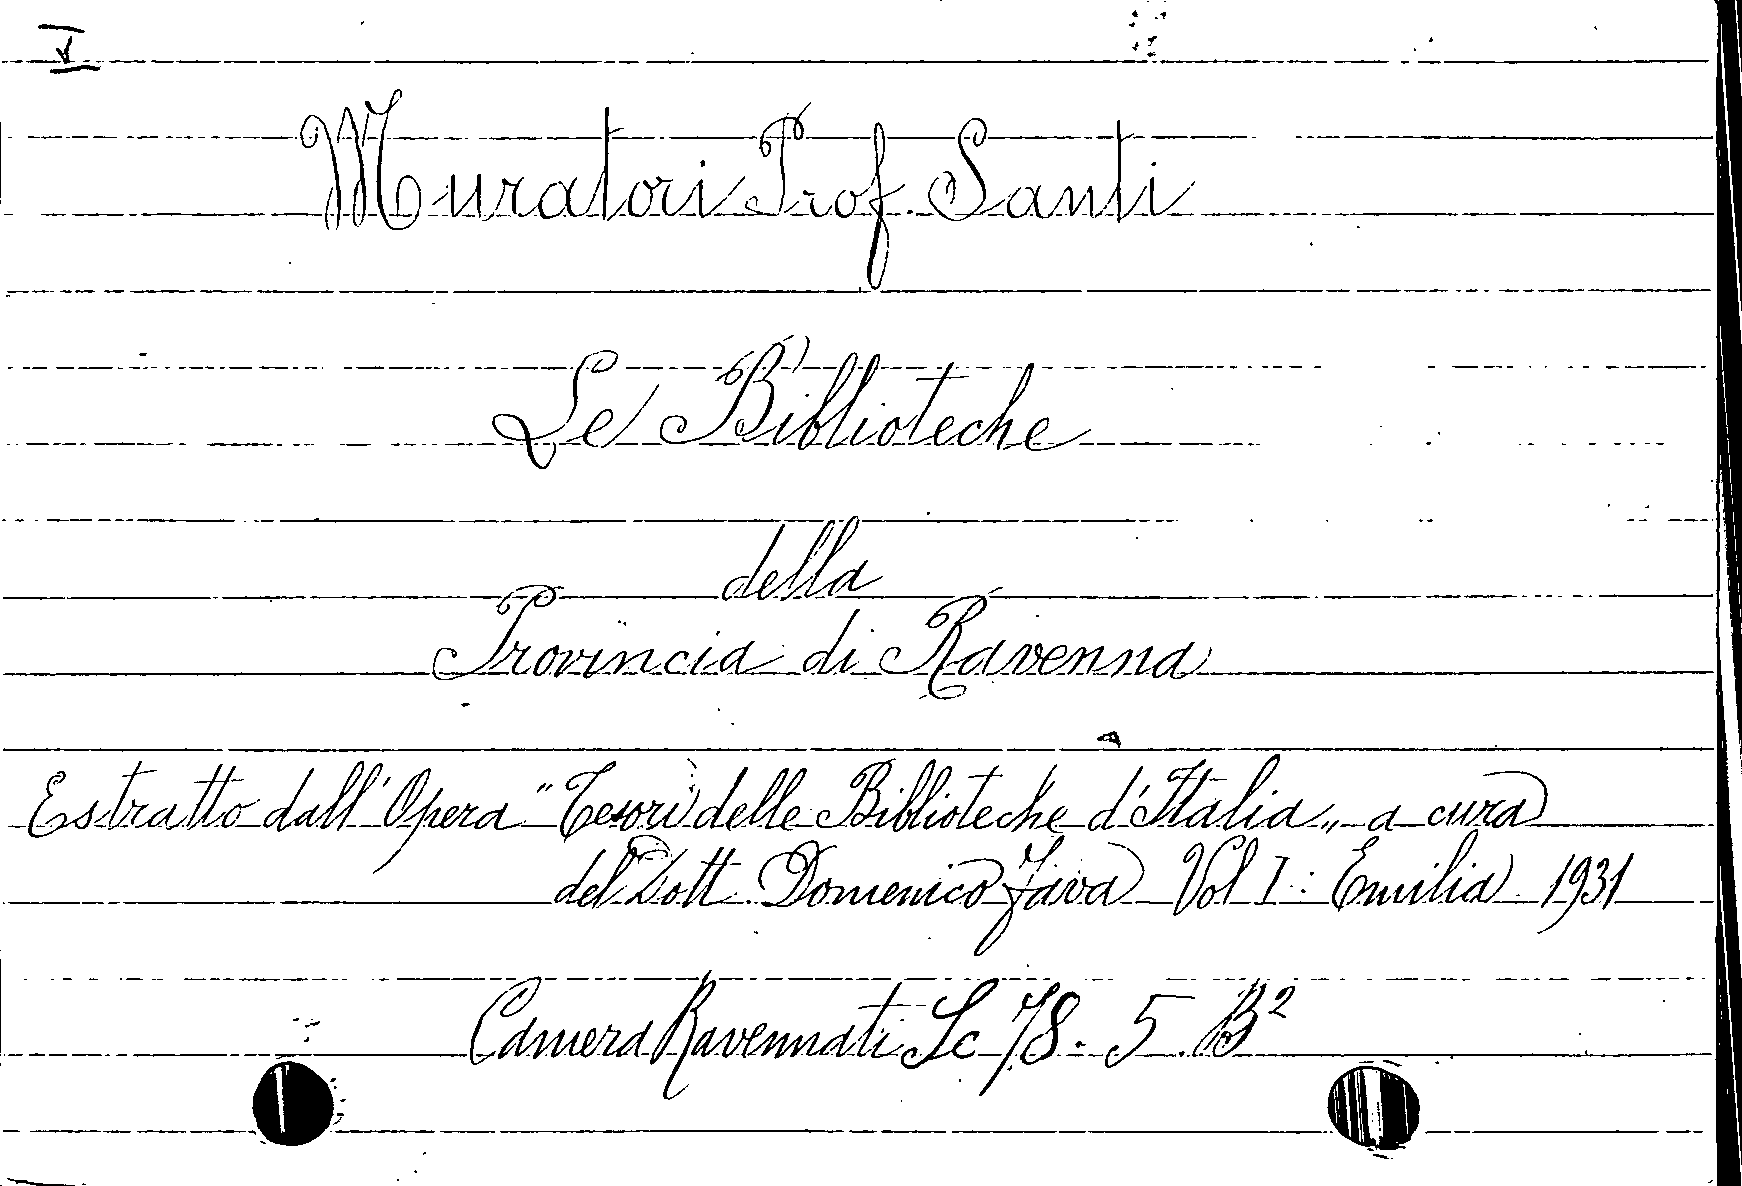 V
Muratori Prof. Santi
Le Biblioteche
della
Provincia di Ravenna
Estratto dall'Opera "Tesori delle Biblioteche d'Italia„ a cura
del Dott. Domenico Fava Vol I: Emilia 1931
Camera Ravennati Sc 78. 5. B²